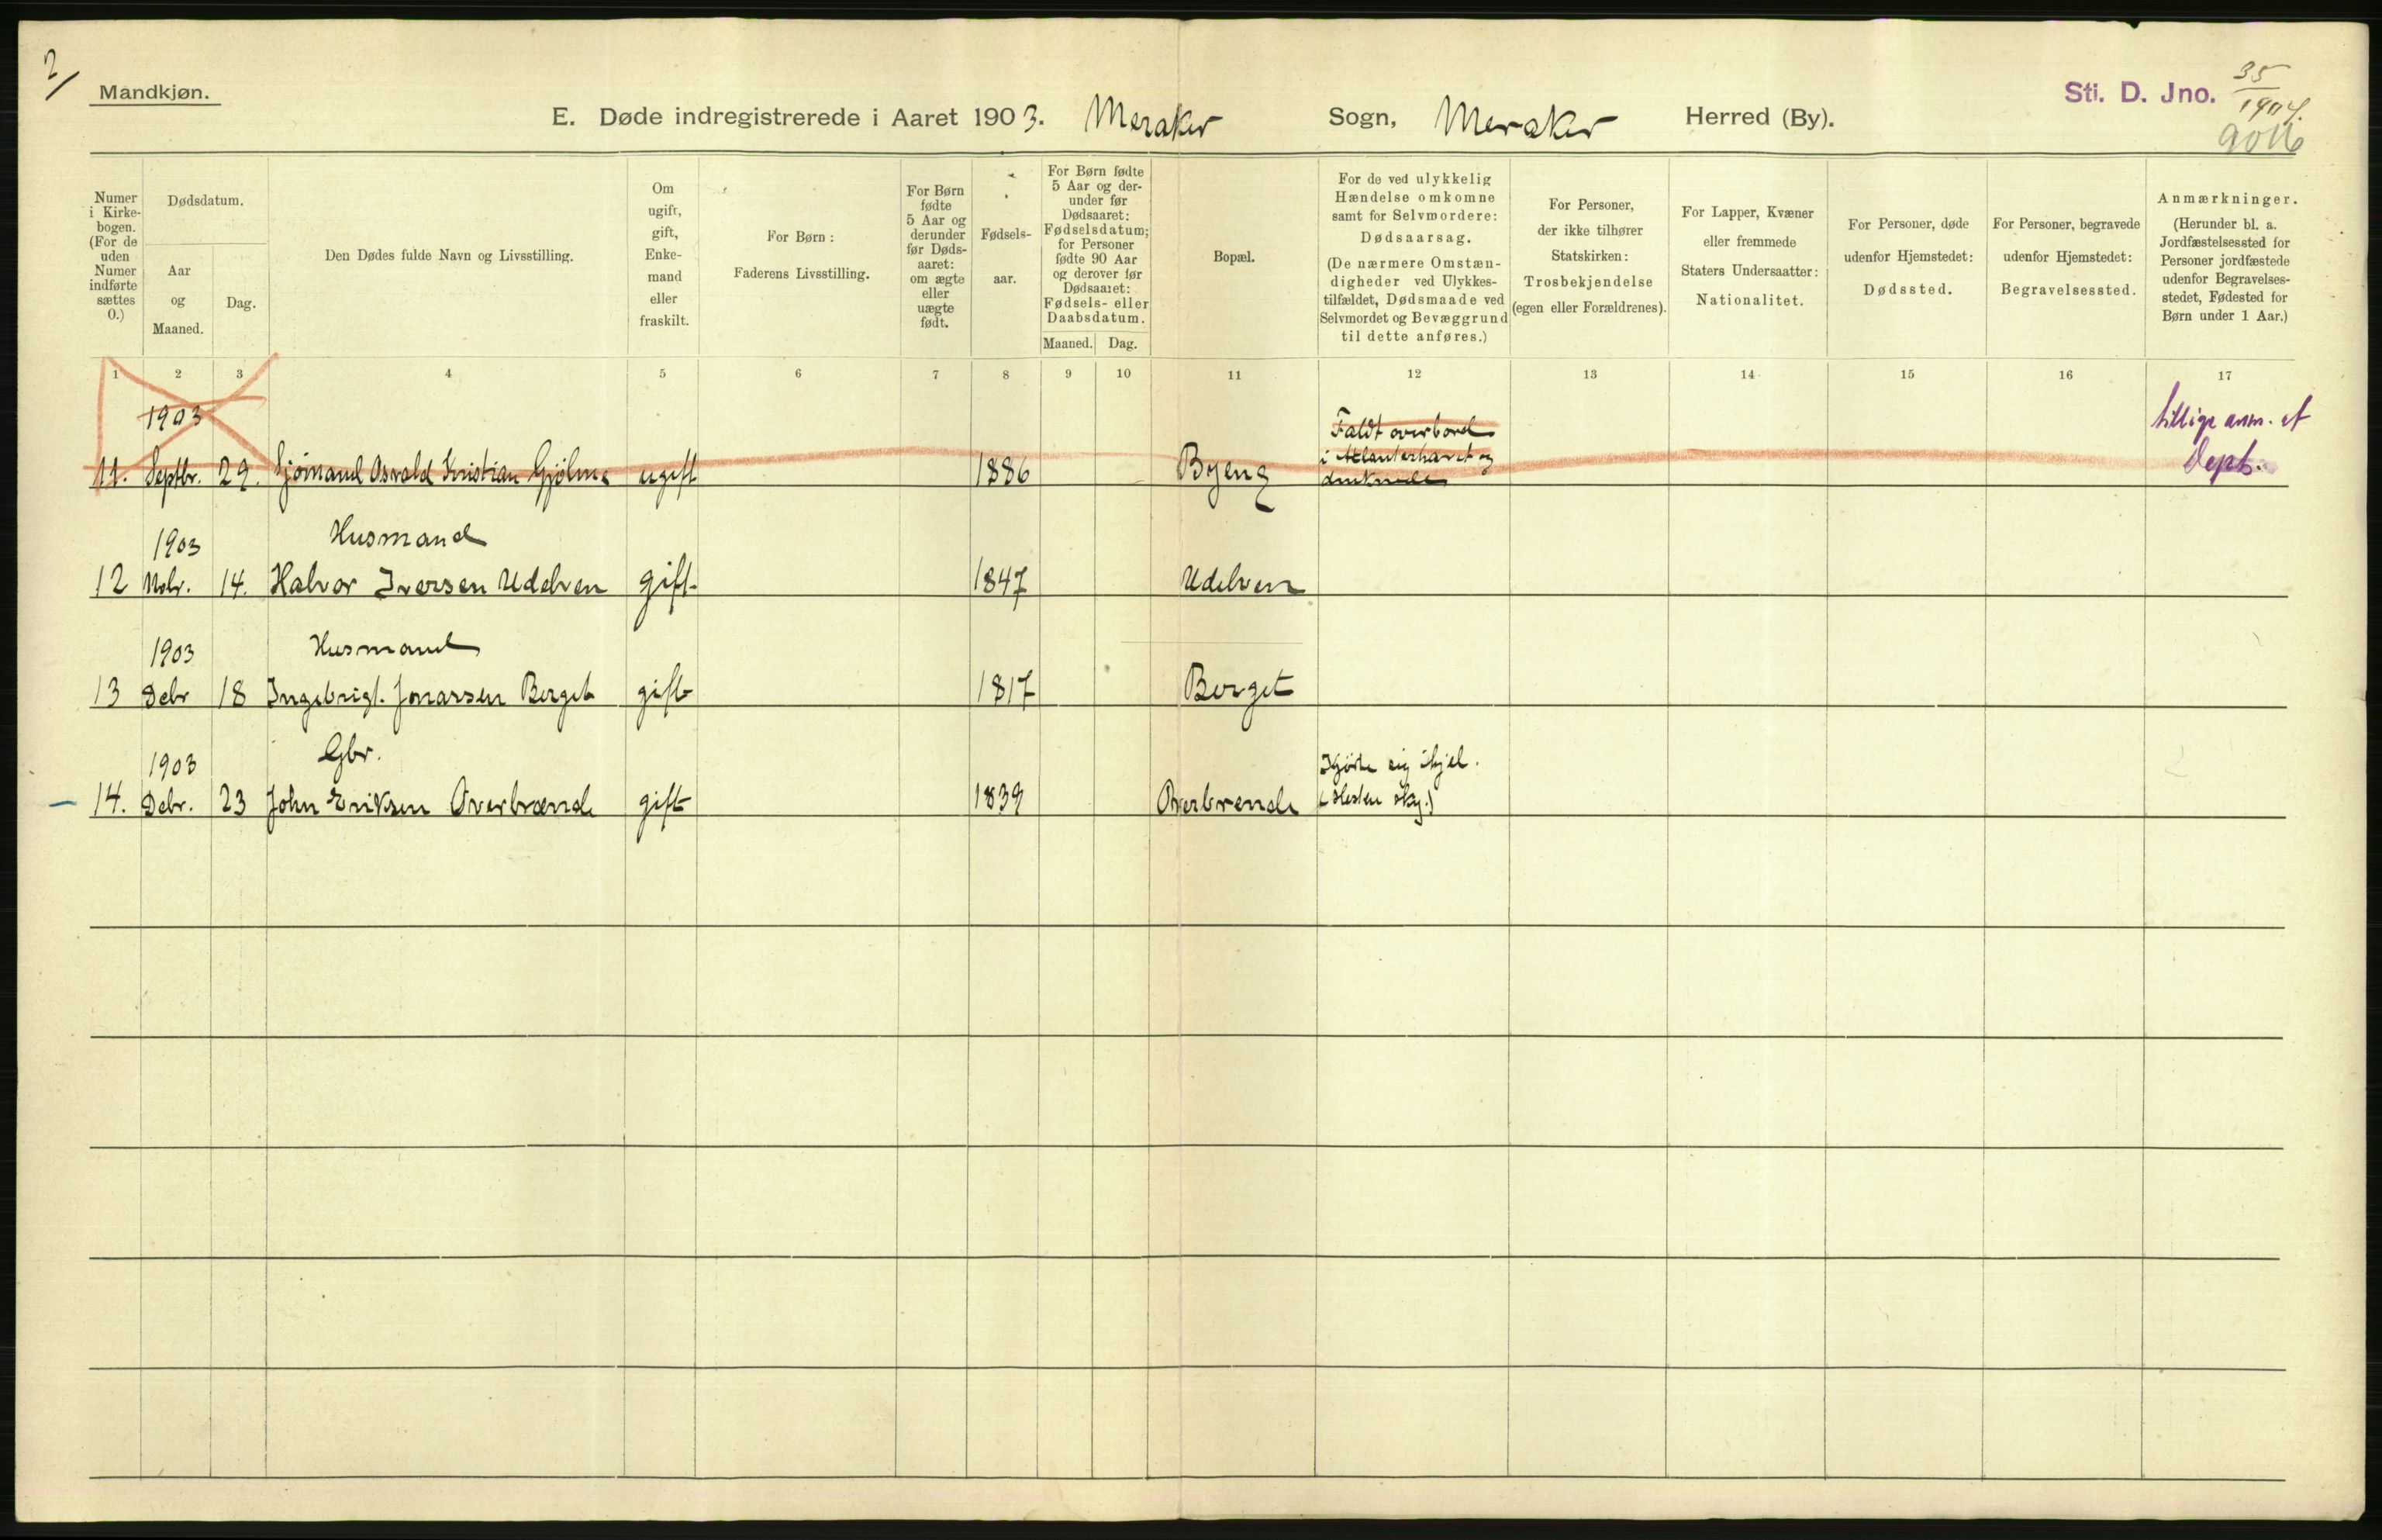 2/
Mandkjøn.
E. Døde indregistrerede i Aaret 1903. Meraker Sogn, Meraker Herred (By).
Sti. D. Jno. 35
1904.
Numer
i Kirke-
bogen.
(For de
uden
Numer
indførte
sættes
0.)
Dødsdatum.
Aar
og
Maaned.
Dag.
Den Dødes fulde Navn og Livsstilling.
Om
ugift,
gift,
Enke-
mand
eller
fraskilt.
For Børn:
Faderens Livsstilling.
For Børn
fødte
5 Aar og
derunder
før Døds-
aaret:
om ægte
eller
uægte
født.
Fødsels-
aar.
For Børn fødte
5 Aar og der-
under før
Dødsaaret:
Fødselsdatum;
for Personer
fødte 90 Aar
og derover før
Dødsaaret:
Fødsels- eller
Daabsdatum.
Maaned. Dag.
Bopæl.
For de ved ulykkelig
Hændelse omkomne
samt for Selvmordere:
Dødsaarsag.
(De nærmere Omstæn-
digheder ved Ulykkes-
tilfældet, Dødsmaade ved
Selvmordet og Bevæggrund
til dette anføres.)
For Personer,
der ikke tilhører
Statskirken:
Trosbekjendelse
(egen eller Forældrenes).
For Lapper, Kvæner
eller fremmede
Staters Undersaatter:
Nationalitet.
For Personer, døde
udenfor Hjemstedet:
Dødssted.
For Personer, begravede
udenfor Hjemstedet:
Begravelsessted.
Anmærkninger.
(Herunder bl. a.
Jordfæstelsessted for
Personer jordfæstede
udenfor Begravelses-
stedet, Fødested for
Børn under 1 Aar.)
1 2 3 4 5 6 7 8 9 10 11 12 13 14 15 16 17
1903
Faldt overbord
i Atlanterhavet og
druknede
tillige anm. af
Dept.
11. Septbr. 29. Sjömand Osvald Kristian Gjölme ugift 1886 Byeng
1903 Husmand
12 Novbr. 14. Halvor Iversen Udelven gift 1847 Udelven
1903 Husmand
13 Debr 18 Ingebrigt. Jonassen Berget gift 1817 Berget
1903 Gbr.
Kjörte sig ihjel.
14. Debr. 23 John Eriksen Overbrænde gift 1839 Overbrende (Hesten sky.)